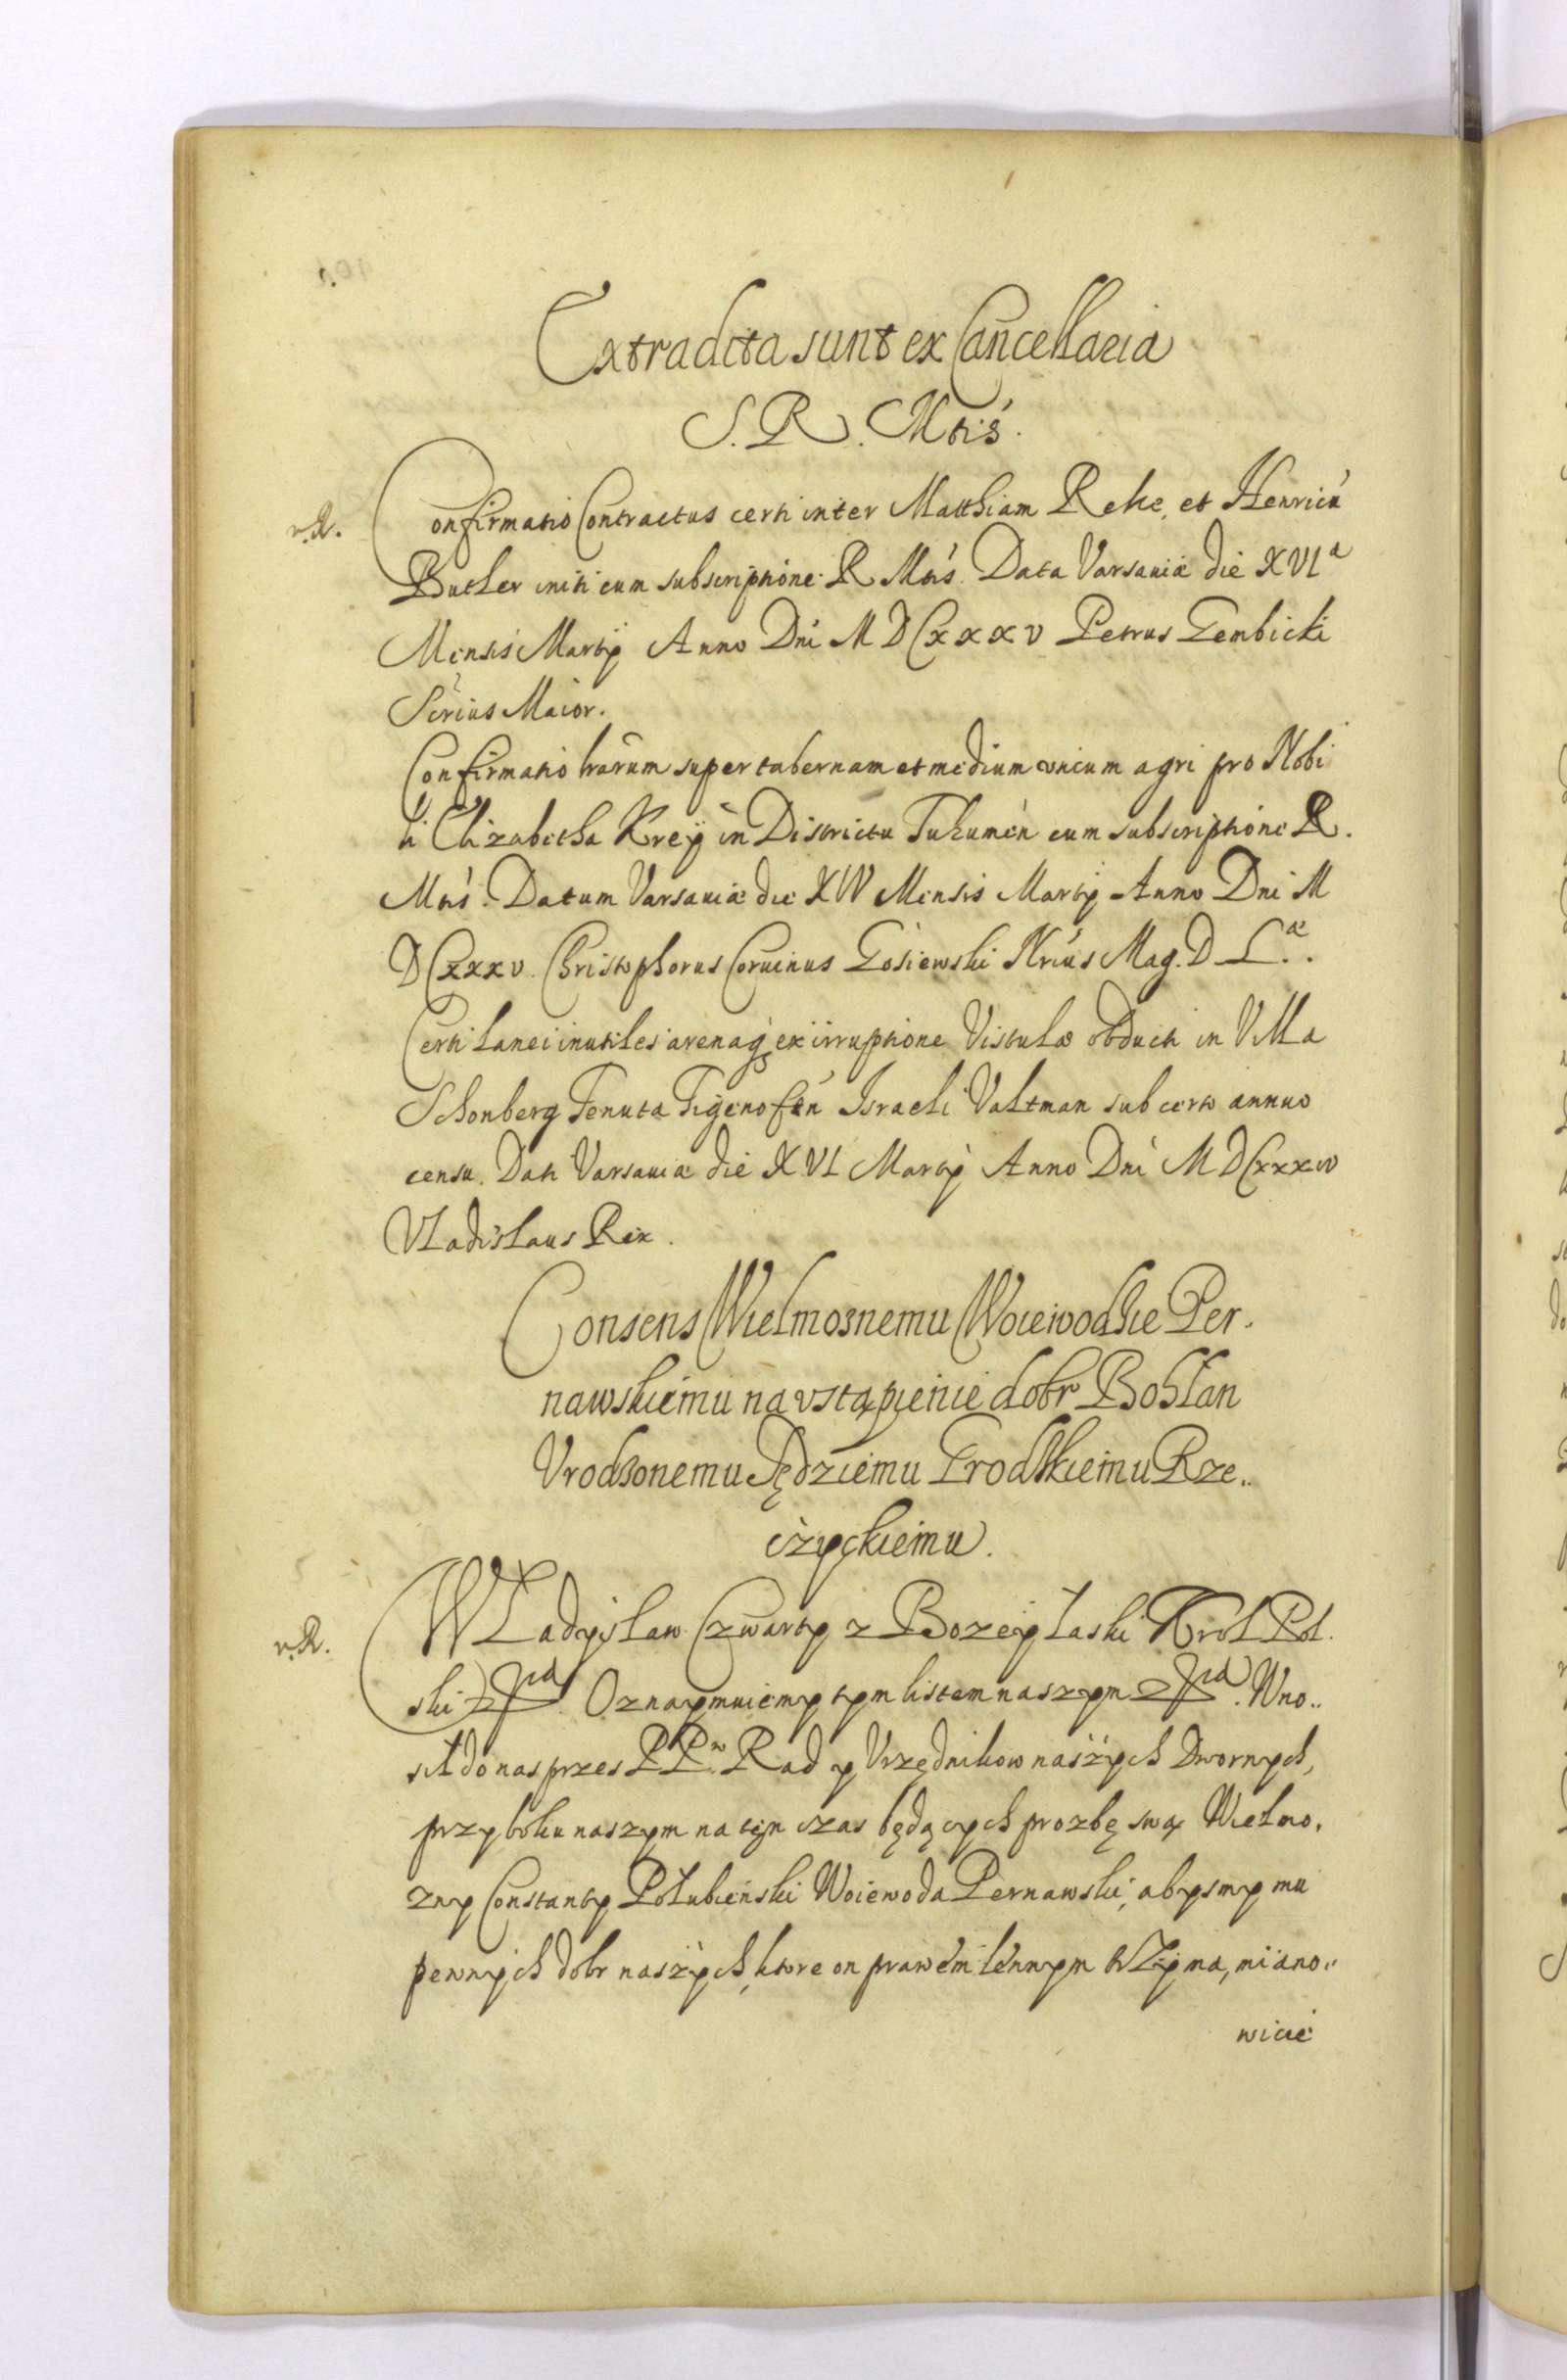 Extradita sunt ex Cancellaria
S. R. Mtis.
r. R.
Confirmatio Contractus certi inter Matthiam Reke, et Henricu
Butler initi cum subscriptione R Mtis. Data Varsaviæ die XVI a
Mensis Martij Anno Dni MDCxxxv Petrus Gembicki
Scrius Maior.
Confirmatio lrarum super tabernam et medium uncum agri pro Nobi
li Elizabetha Kreÿ in Districtu Tukumen cum subscriptione R.
Mtis. Datum Varsaviæ die XIV Mensis Martij Anno Dni M
DCxxxv. Christophorus Corvinus Gosiewski Nrius Mag. D L. æ.
Certi Lanei inutiles arenaq ex irruptione Vistulæ obducti in Villa
Schonberg Tenuta Tigenofen Israeli Valtman sub certo annuo
censu. Dati Varsaviæ die XVI Martij Anno Dni MDCxxxv
Vladislaus Rex.
Consens Wielmoznemu Woiewodzie Per.
nawskiemu na vstąpienie dobr Bohlan
Vrodzonemu Sędziemu Grodskiemu Rze..
czyckiemu.
r. R.
Władysław Czwarty z Bozey Łaski Krol Pol.
ski Oznaymuiemy tym listem naszym Wno..
sił do nas przes PPw. Rad y Vrzędnikow naszych Dwornych,
przy boku naszym na ten czas będących prozbę swą Wielmo.
zny Constanty Połubieński Woiewoda Pernawski, abysmy mu
pewnych dobr naszych, ktore on prawem lennym trzyma, miano..
wicie